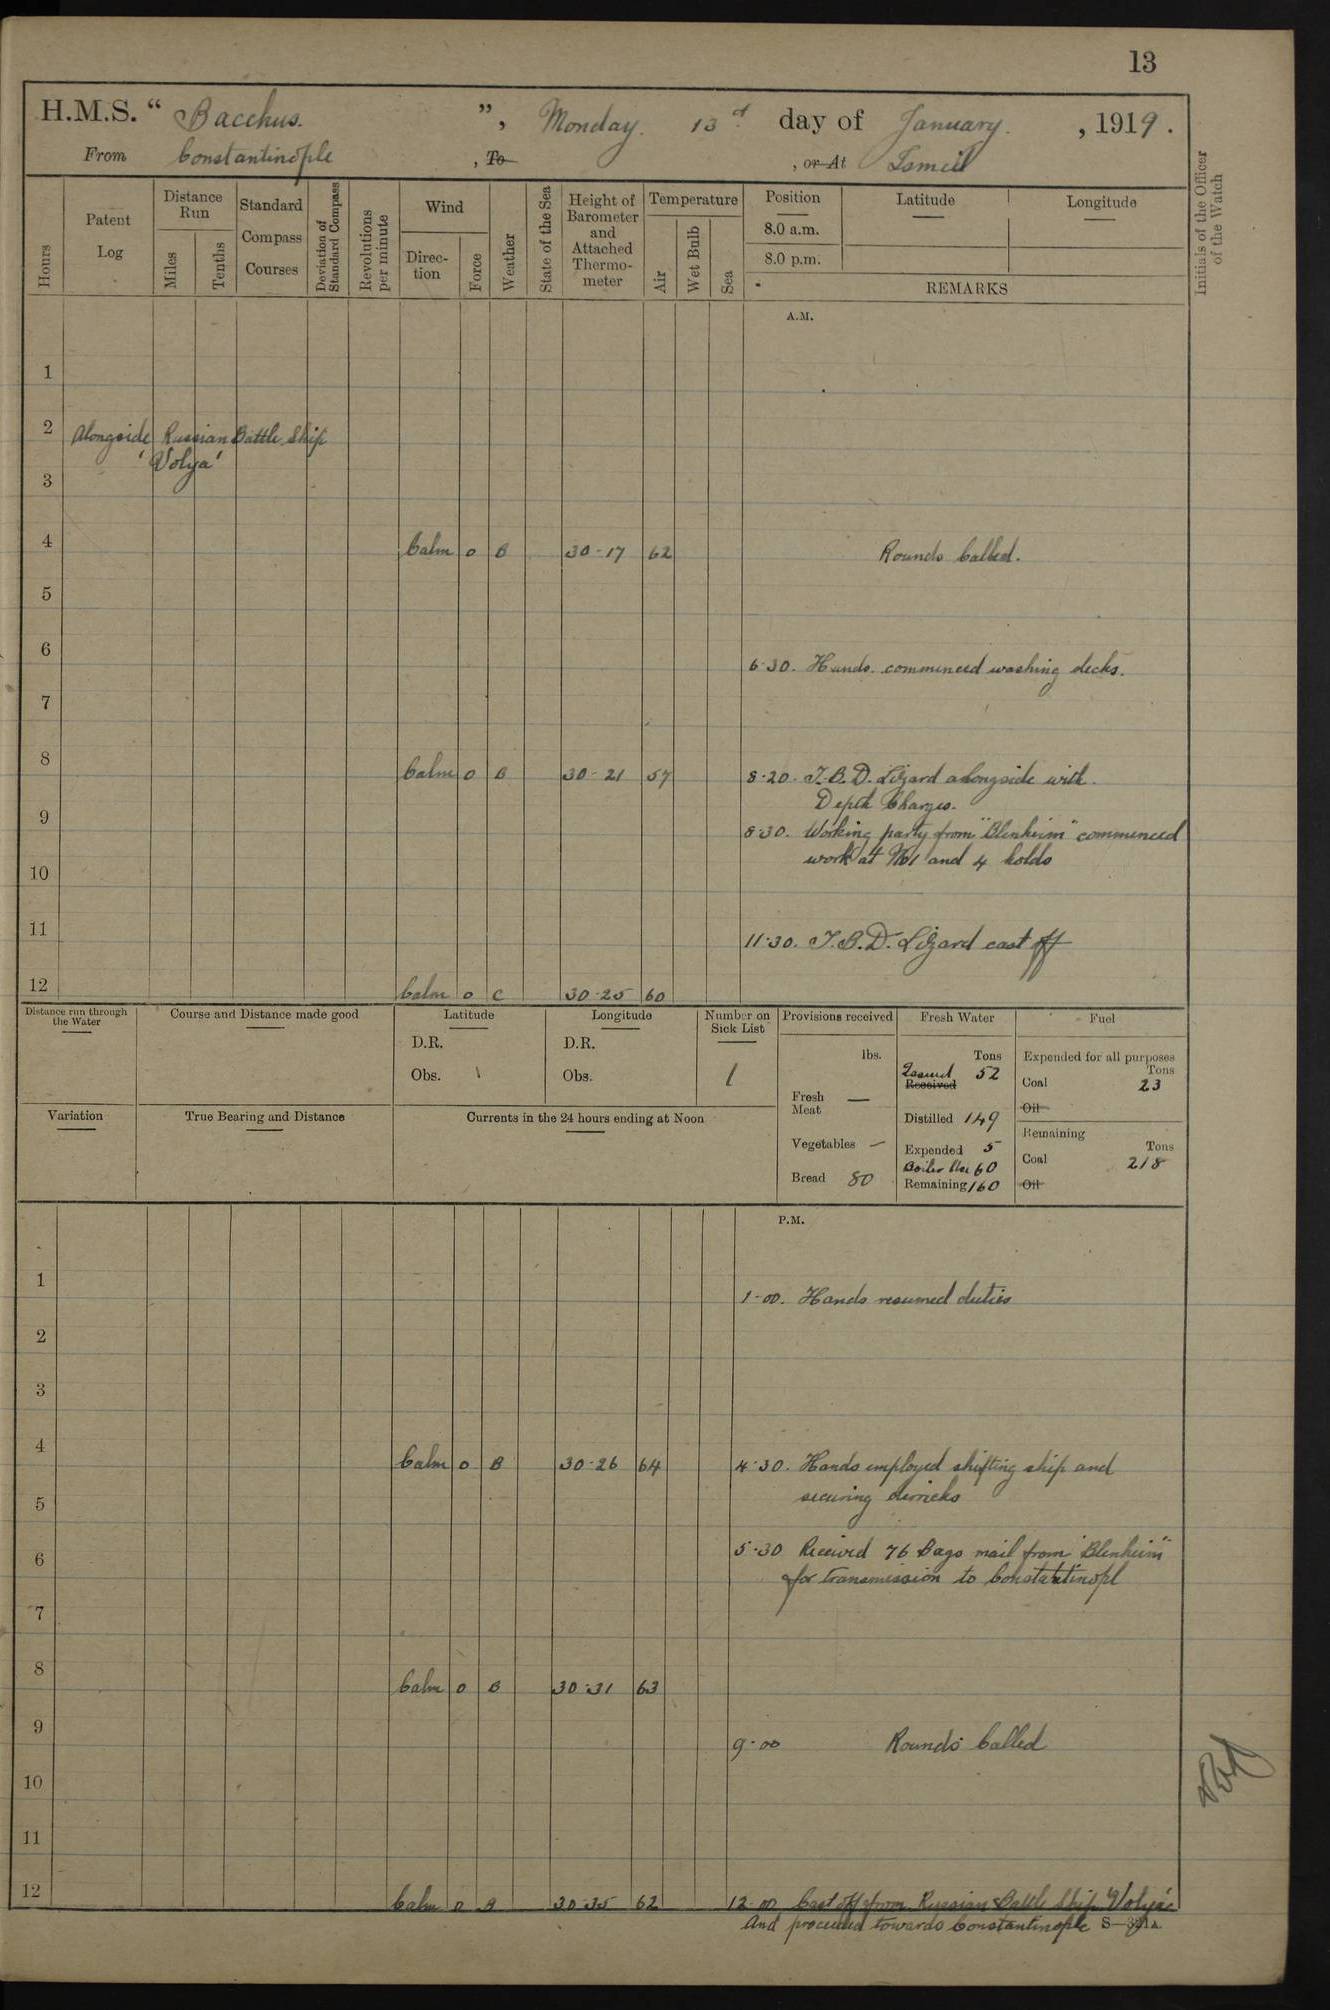 13
H.M.S. " Bacchus. ", Monday. 13 day of January. , 1919.
From Constantinople , To , or At Ismid
Hours
Patent Log
Distance Run
Miles
Tenths
Standard Compass Courses
Deviation of Standard Compass
Revolutions per minute
Wind
Direction
Force
Weather
State of the Sea
Height of Barometer and Attached Thermometer
Temperature
Air
Wet Bulb
Sea
Position Latitude Longitude
8.0 a.m.
8.0 p.m.
REMARKS
Initials of the Officer of the Watch
A.M.
1
2 Alongside Russian Battle Ship
'Volya'
3
4 Calm 0 B 30-17 62 Rounds Called.
5
6
6-30. Hands. commenced washing decks.
7
8 Calm 0 B 30-21 57 8-20. T.B.D. Lizard alongside with
Depth Charges.
9
8-30. Working party from "Blenheim" commenced
work at No1 and 4 holds
10
11
11-30. T.B.D. Lizard cast off
12 Calm 0 C 30-25 60
Distance run through the Water
Course and Distance made good
Latitude
D.R.
Obs.
Longitude
D.R.
Obs.
Number on Sick List
1
Provisions received
lbs.
Fresh Meat —
Vegetables —
Bread 80
Fresh Water
Tons
Issued 52
Received
Distilled 149
Expended 5
Boiler Use 60
Remaining 160
Fuel
Expended for all purposes
Tons
Coal 23
Oil
Remaining
Tons
Coal 218
Oil
Variation
True Bearing and Distance
Currents in the 24 hours ending at Noon
P.M.
1
1-00. Hands resumed duties
2
3
4 Calm 0 B 30-26 64 4-30. Hands employed shifting ship and
securing derricks
5
6
5-30 Received 76 Bags mail from "Blenheim"
for transmission to Constantinopl
7
8 Calm 0 B 30-31 63
9
9-00 Rounds Called
10
11
12 Calm 0 B 30-35 62 12-00 Cast off from Russian Battle Ship "Volya"
And proceeded towards Constantinople S—321A.